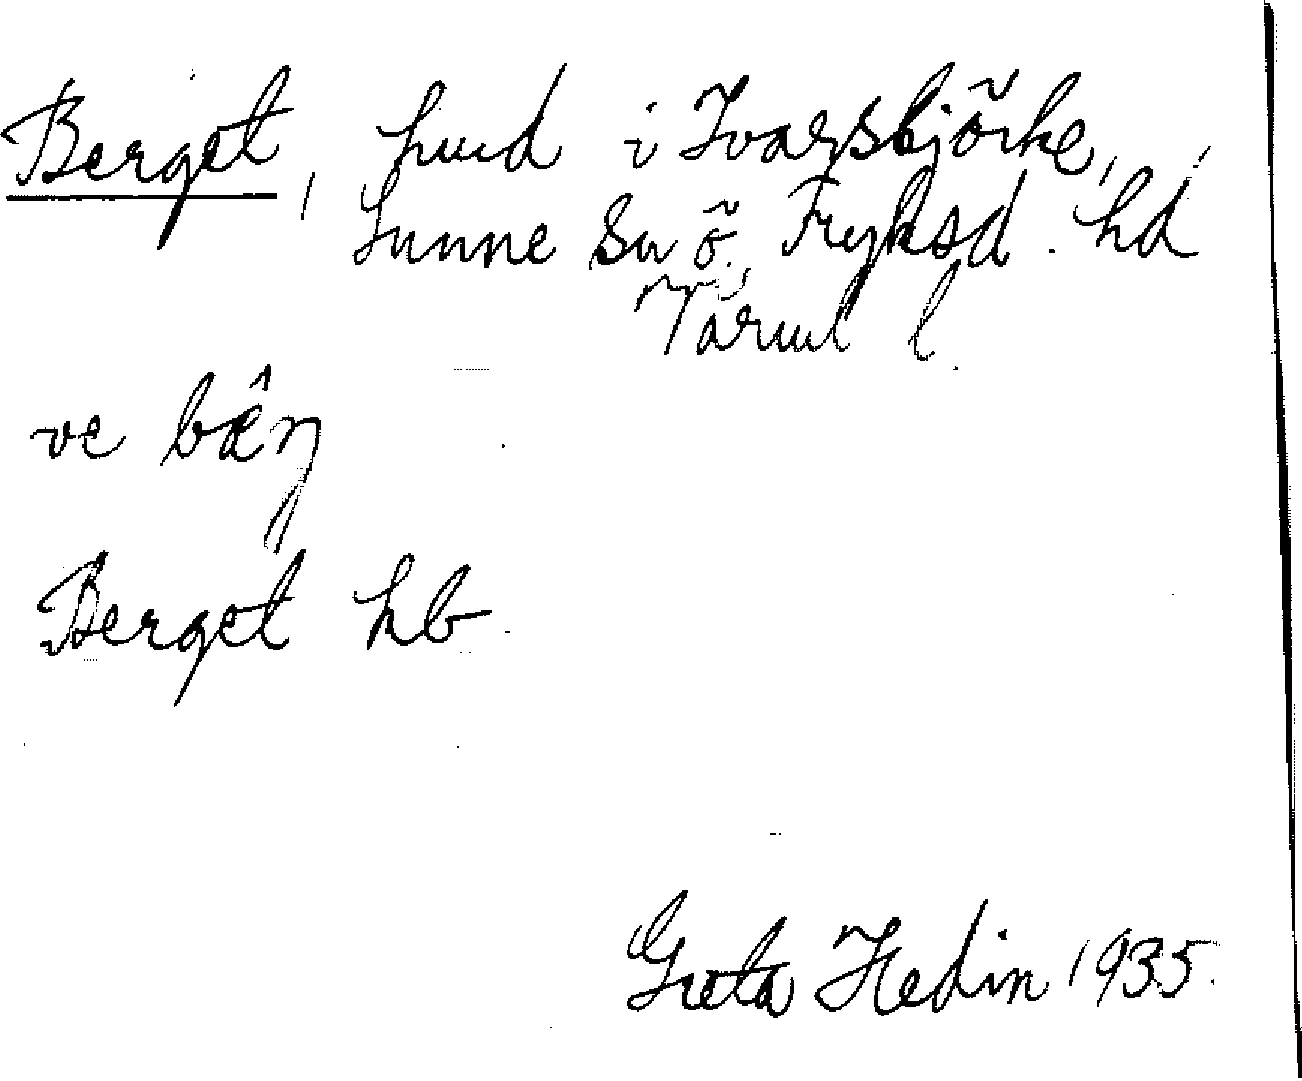 Berget, hmd i Ivarsbjörke,
Sunne sn ö. Fryksd. hd
Värml l.
ve bæ̂rj
Berget hb.
Greta Hedin 1935.